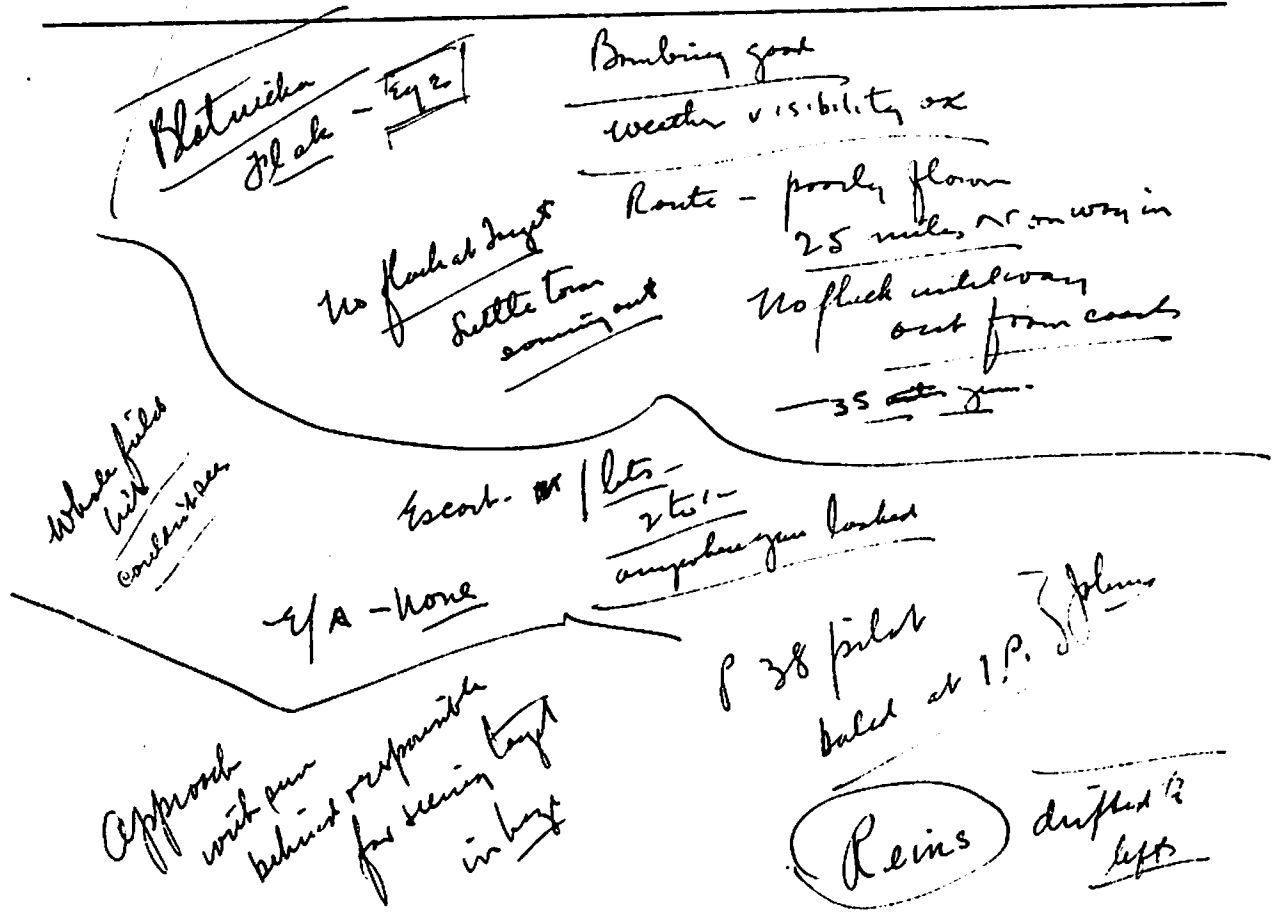 Flak -
Bombing good
weather visibility ok
Route - poorly flown
25 miles N. on way in
No flack until way
out from coast
- 35
No flack at target
little town
coming out
Whole field
hit
couldn't see
Escort - lots -
2 to 1 -
anywhere you looked
E/A - None
P 38 pilot
baled at I.P.
Approach
with sun
behind responsible
for seeing target
in haze
Reins
drifted
left